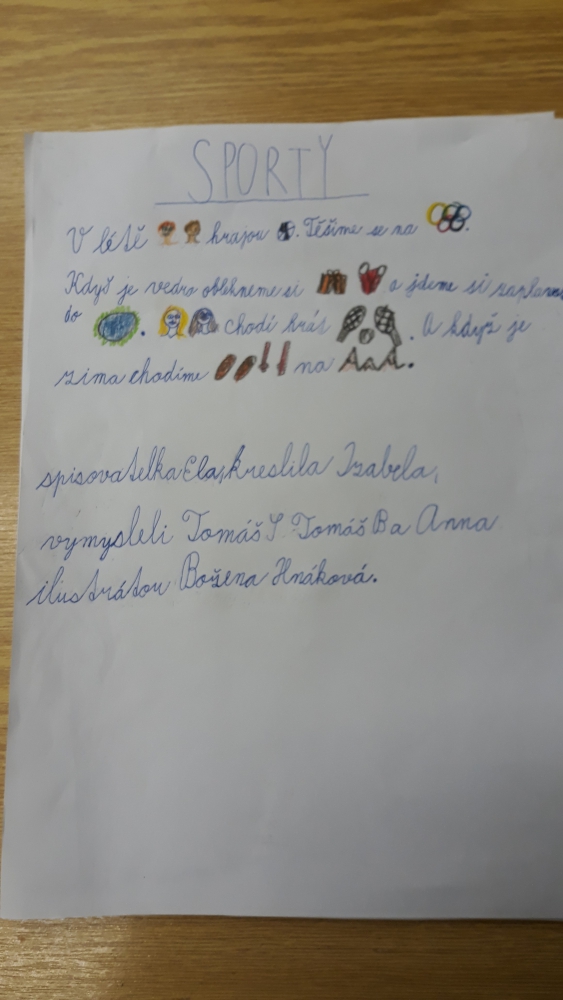 SPORTY
V létě hrajou . Těšíme se na .
Když je vedro oblékneme si a jdeme si zaplavat
do . chodí hrát . A když je
zima chodíme na .
spisovatelka Ela, kreslila Izabela,
vymysleli Tomáš S Tomáš B a Anna
ilustrátou Božena Hnáková.